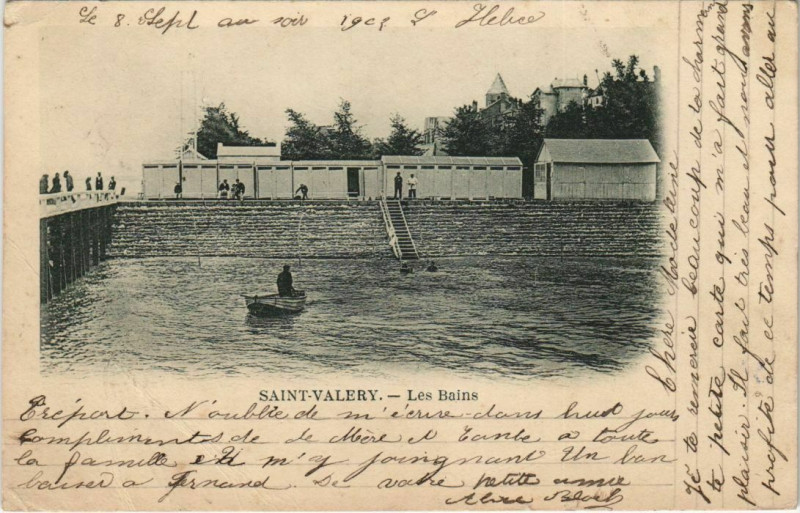 Le 8. Sept au soir 190
Chère Madeleine
Je te remercie beaucoup de ta charman
te petite carte qui m'a fait grand
plaisir. Il fait très beau et nous avons
profité de ce temps pour aller au
SAINT-VALERY. — Les Bains
Tréport. N'oublie de m'écrire dans huit jours
Compliments de de Mère et Tante à toute
la famille en m'y joingnant Un bon
baiser à Fernand. De votre petite amie
Alice Bloch